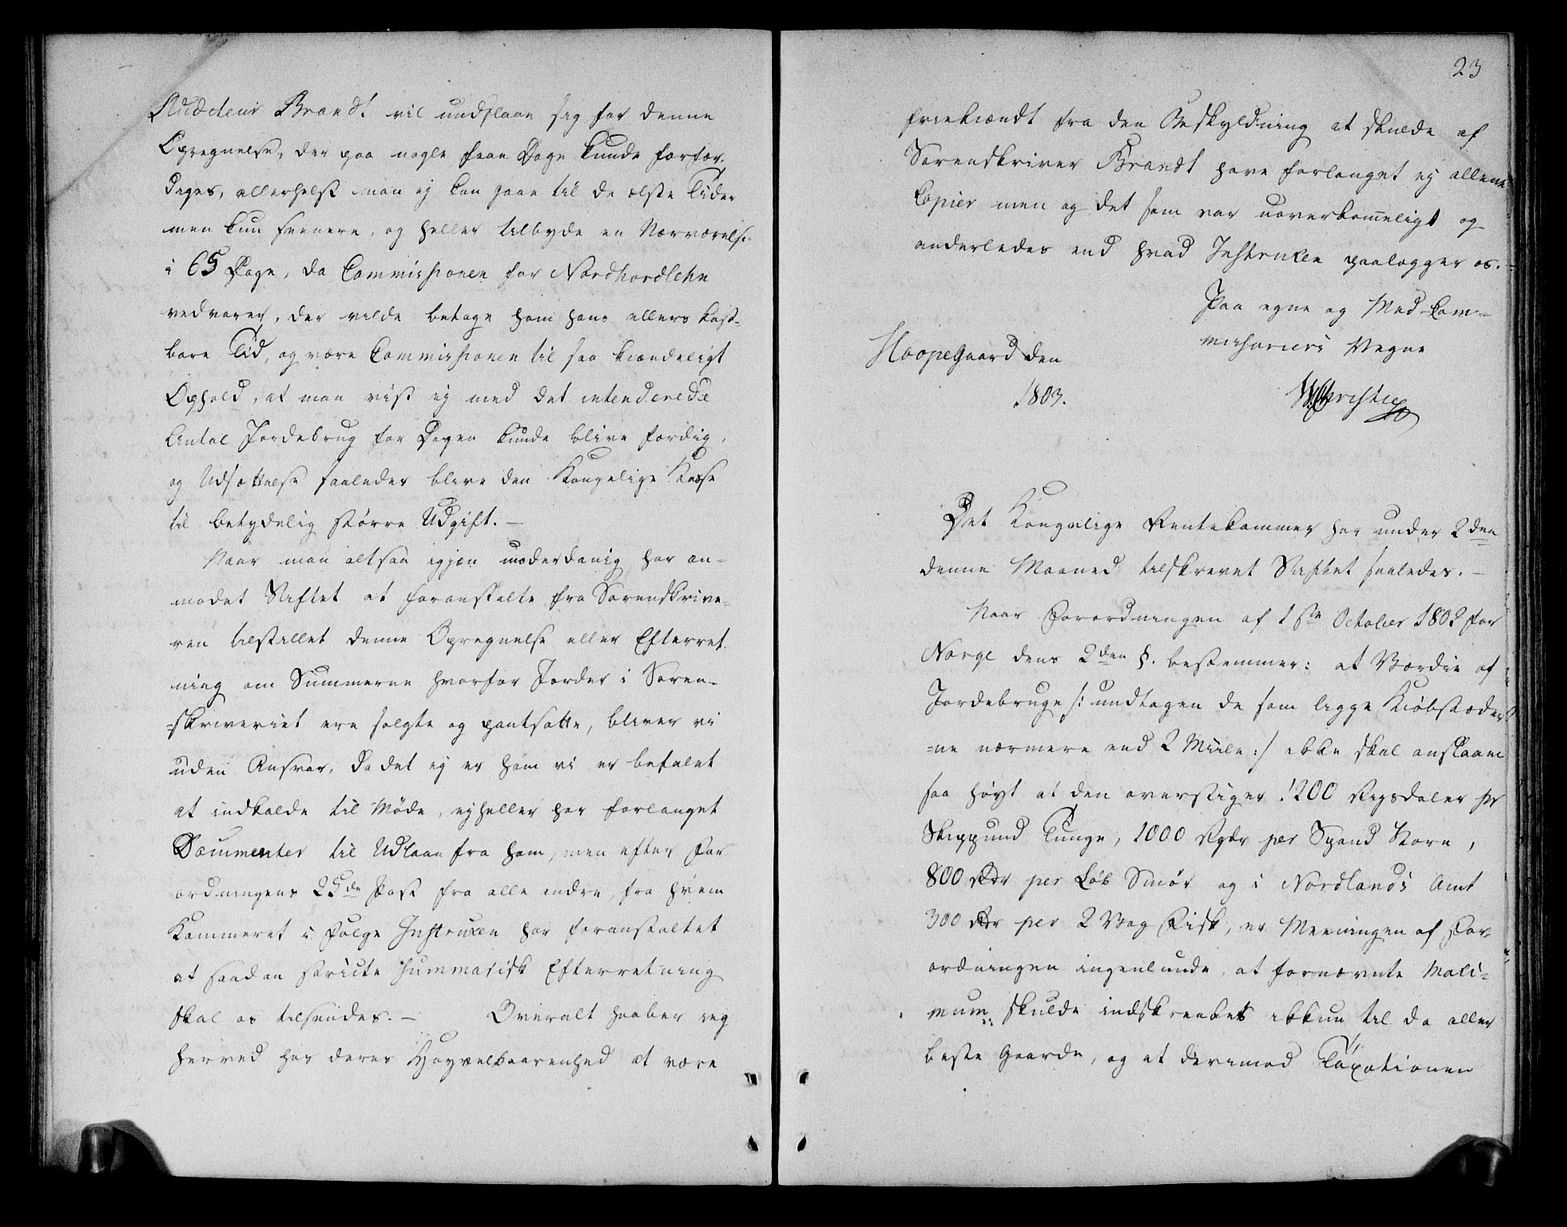 Studdeus Brandt vil undslaae sig for denne
Opregnelse, der paa nogle faae Dage kunde forfær-
diges, allerhelst man ej kan gaae til de ælste Tider
men kun senere, og heller tilbyde en Nærværelse
i 65 Dage, da Commissionen for Nordhordlehn
vedvarer, der vilde betage ham hans ellers kost-
bare Tid, og være Commissionen til saa kiændeligt
Ophold, at man vist ej med det intenderede
Antal Jordebrug for Dagen kunde blive færdig,
og Udsættelse saaledes blive den Kongelige Kasse
til betydelig større Udgift. —
Naar man altsaa igjen underdanig har an-
modet Stiftet at foranstalte fra Sorenskrive-
ren tilstillet denne Opregnelse eller Efterret-
ning om Summerne hvorfor Jorder i Soren-
-skriveriet ere solgte og pantsatte, bliver vi
uden Ansvar, da det ej er ham vi er befalet
at indkalde til Møde, ejheller har forlanget
Documenter til Udlaan fra ham, men efter For
ordningens 25de Post fra alle andre, fra hvem
Kammeret i Følge Instruxen har foranstaltet
at saadan stricte summarisk Efterretning
skal os tilsendes. — Overalt haaber jeg
herved har deres Høyvelbaarenhed at være
23
friekiændt fra den Beskyldning at skulde af
Sorenskriver Brandt have forlanget ej allene
Copier men og det som var uoverkommeligt og
anderledes end hvad Instruxen paalægger os. —
Paa egne og Med Com-
missariers Vegne
Hoopegaard den
1803.
WChristie
Det Kongelige Rentekammer har under 2den
denne Maaned tilskrevet Stiftet saaledes. —
Naar Forordningen af 1ste October 1802 for
Norge dens 2den §. bestemmer: at Værdie af
Jordebruge /: undtagen de som ligge Kiøbstæder
-ne nærmere end 2 Miile :/ ikke skal anslaaes
saa høyt at den overstiger 1200 Rigsdaler pr
Skippund Tunge, 1000 Rdr per Spand Korn,
800 Rdr per Løb Smør og i Nordlands Amt
300 Rdr per 2 Vog Fisk, er Meeningen af For
ordningen ingenlunde, at fornævnte Maxi-
mum skulde indskrænkes ikkun til de aller
beste Gaarde, og at derimod Taxationen